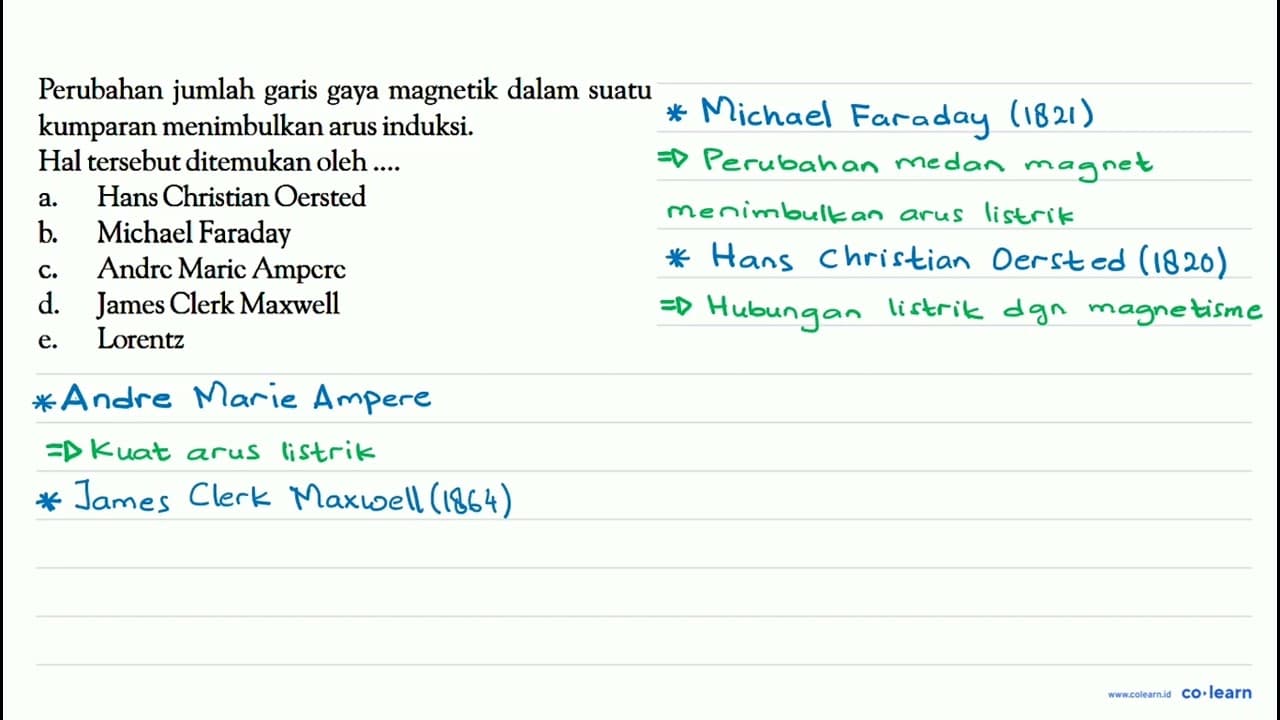 Perubahan jumlah garis gaya magnetik dalam suatu
kumparan menimbulkan arus induksi.
Hal tersebut ditemukan oleh ....
a. Hans Christian Oersted
b. Michael Faraday
c. Andre Marie Ampere
d. James Clerk Maxwell
e. Lorentz
* Michael Faraday (1821)
⇒ Perubahan medan magnet
menimbulkan arus listrik
* Hans Christian Oersted (1820)
⇒ Hubungan listrik dgn magnetisme
* Andre Marie Ampere
⇒ Kuat arus listrik
* James Clerk Maxwell (1864)
www.colearn.id co·learn